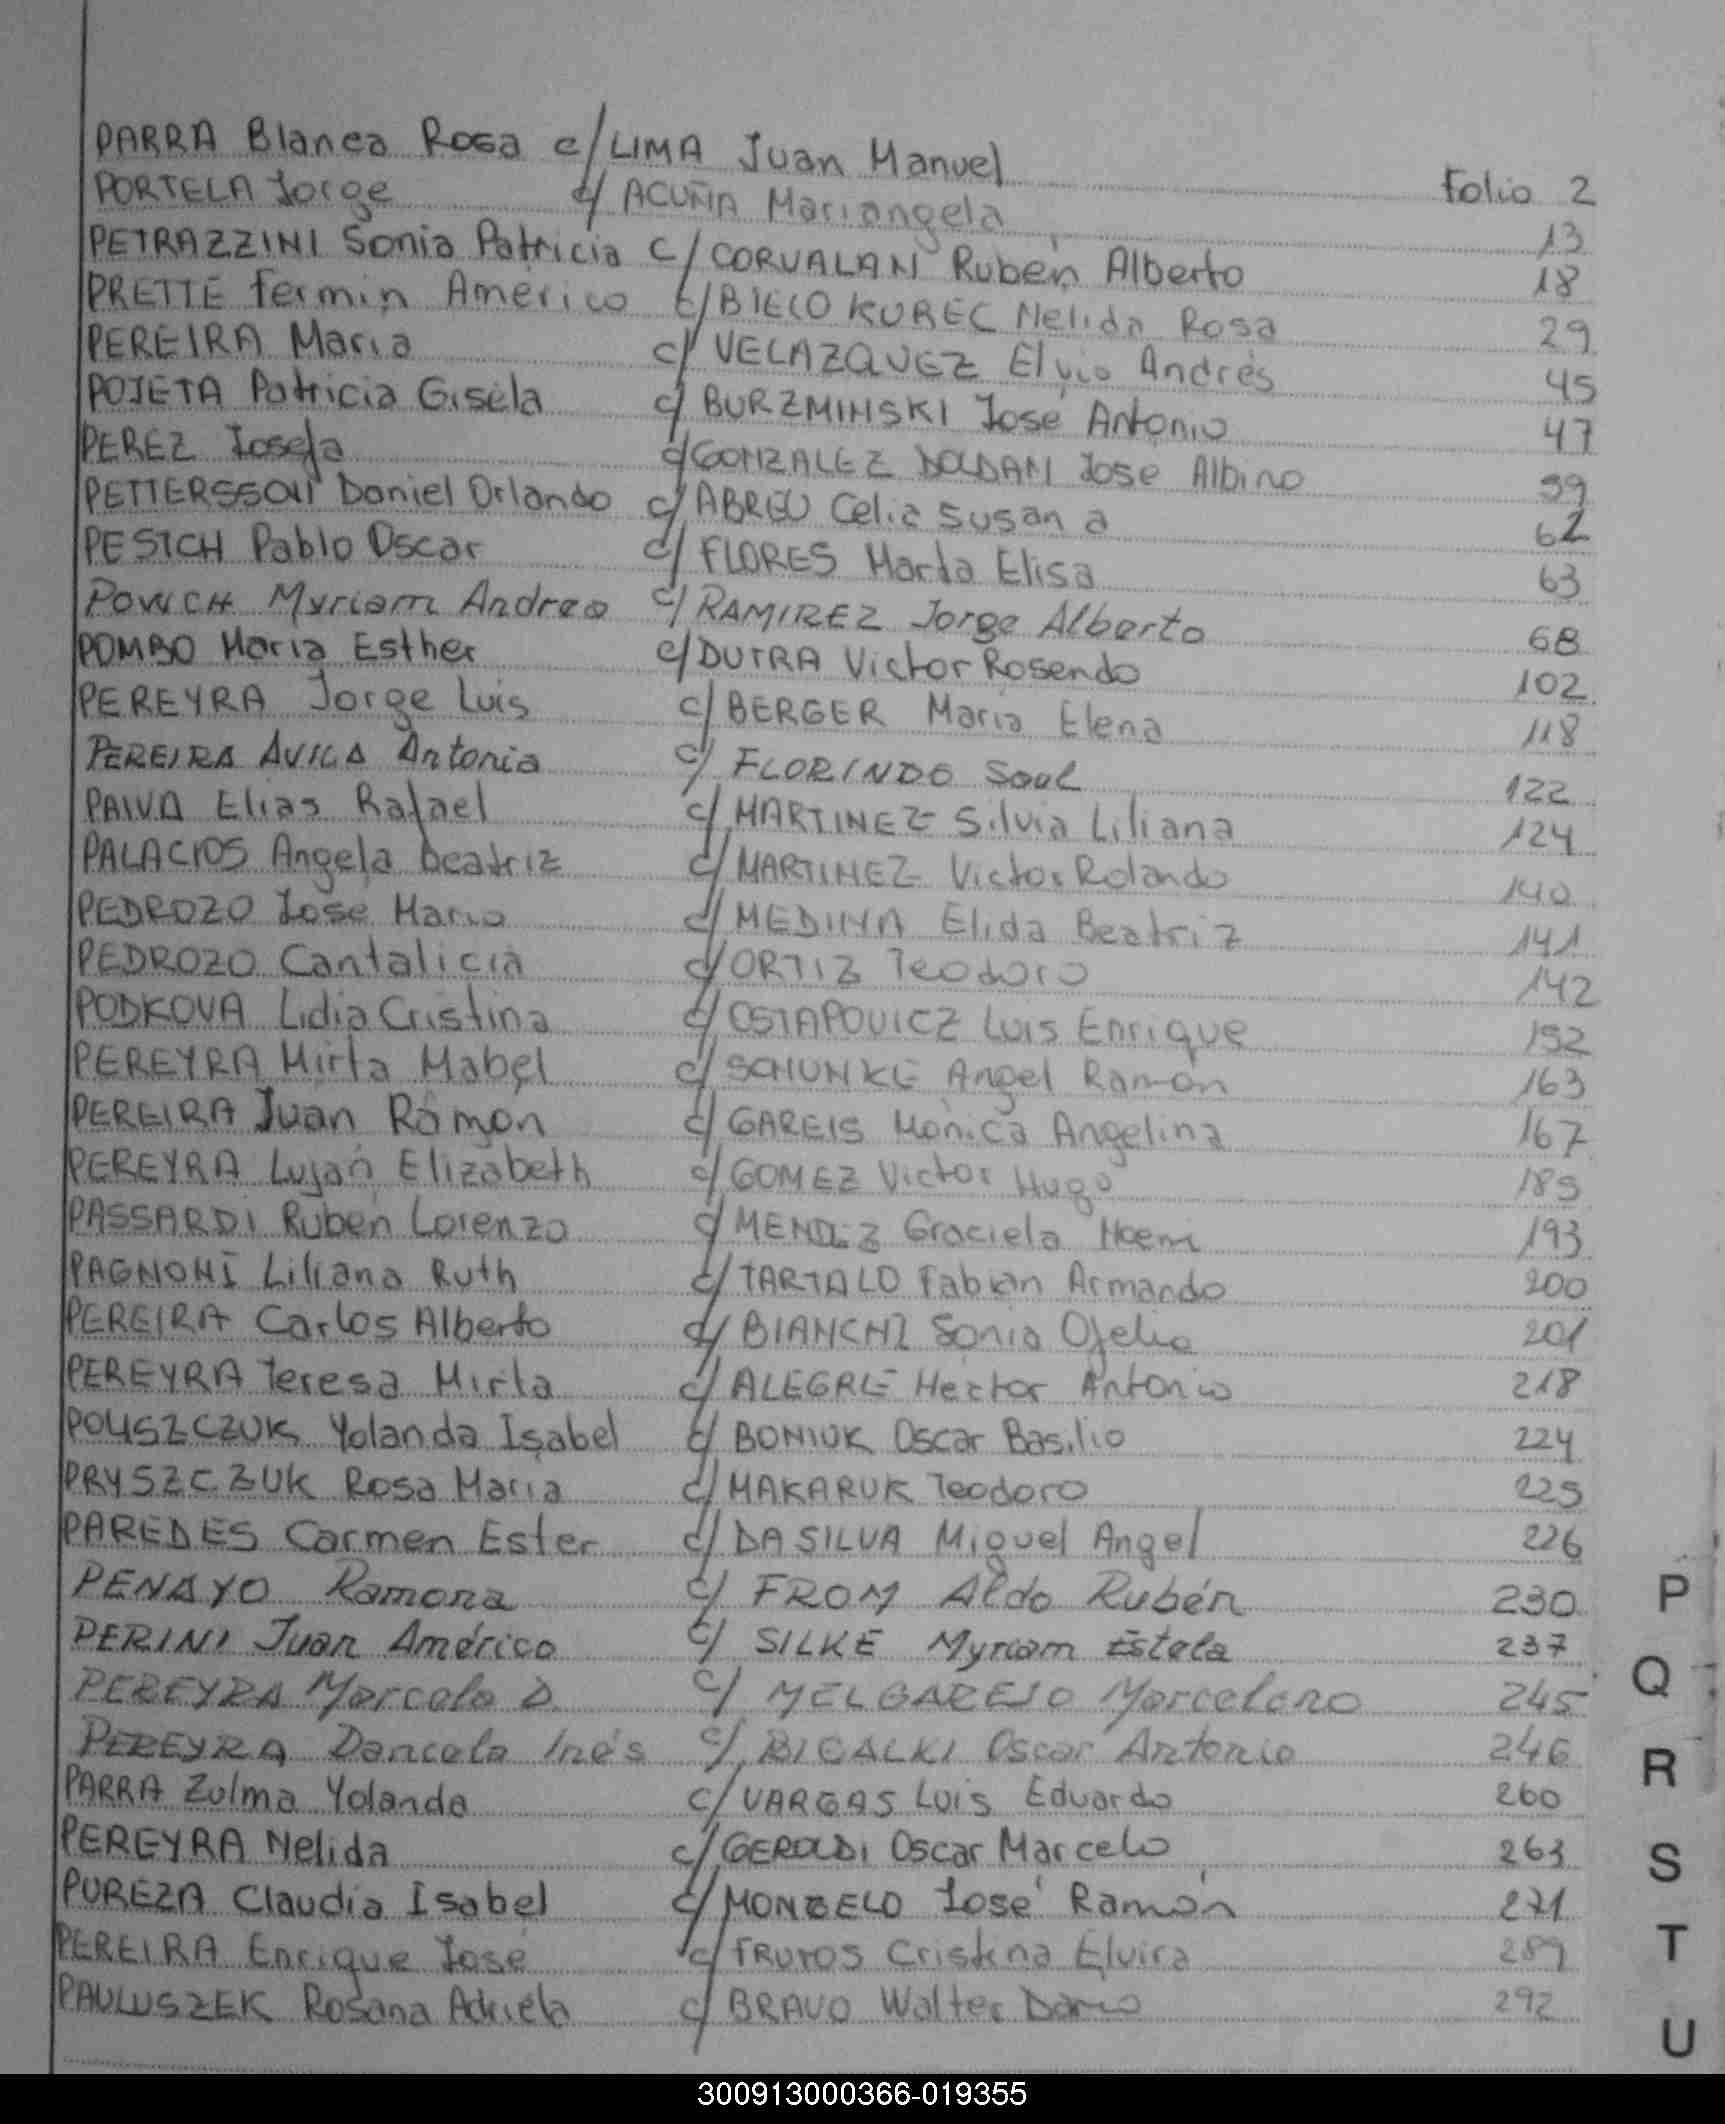 PARRA Blanca Rosa c/ LIMA Juan Manuel Folio 2
PORTELA Jorge c/ ACUÑA Mariangela 13
PETRAZZINI Sonia Patricia c/ CORVALAN Rubén Alberto 18
PRETTE Fermin Américo c/ BIELOKUREC Nelida Rosa 29
PEREIRA Maria c/ VELAZQUEZ Elvio Andrés 45
POJETA Patricia Gisela c/ BURZMINSKI José Antonio 47
PEREZ Josefa c/ GONZALEZ DOLDAN José Albino 59
PETTERSSON Daniel Orlando c/ ABREU Celia Susana 62
PESICH Pablo Oscar c/ FLORES Marta Elisa 63
POWCH Myriam Andrea c/ RAMIREZ Jorge Alberto 68
POMBO Maria Esther c/ DUTRA Victor Rosendo 102
PEREYRA Jorge Luis c/ BERGER Maria Elena 118
PEREIRA AVILA Antonia c/ FLORINDO Saul 122
PAIVA Elias Rafael c/ MARTINEZ Silvia Liliana 124
PALACIOS Angela Beatriz c/ MARTINEZ Victor Rolando 140
PEDROZO José Mario c/ MEDINA Elida Beatriz 141
PEDROZO Cantalicia c/ ORTIZ Teodoro 142
PODKOVA Lidia Cristina c/ OSTAPOVICZ Luis Enrique 152
PEREYRA Mirta Mabel c/ SCHUNKE Angel Ramón 163
PEREIRA Juan Ramon c/ GAREIS Mónica Angelina 167
PEREYRA Luján Elizabeth c/ GOMEZ Victor Hugo 185
PASSARDI Rubén Lorenzo c/ MENDEZ Graciela Noemi 193
PAGNONI Liliana Ruth c/ TARTALO Fabian Armando 200
PEREIRA Carlos Alberto c/ BIANCHI Sonia Ofelia 201
PEREYRA Teresa Mirta c/ ALEGRE Hector Antonio 218
POLISZCZUK Yolanda Isabel c/ BONIUK Oscar Basilio 224
PRYSZCZUK Rosa Maria c/ MAKARUK Teodoro 225
PAREDES Carmen Ester c/ DA SILVA Miguel Angel 226
PENAYO Ramona c/ FROM Aldo Rubén 230
PERINI Juan Américo c/ SILKE Myriam Estela 237
PEREYRA Marcelo D. c/ MELGAREJO Marcelino 245
PEREYRA Daniela Inés c/ BIGALKI Oscar Antonio 246
PARRA Zulma Yolanda c/ VARGAS Luis Eduardo 260
PEREYRA Nelida c/ GEROLDI Oscar Marcelo 263
PUREZA Claudia Isabel c/ MONZELO José Ramón 271
PEREIRA Enrique José c/ FRUTOS Cristina Elvira 289
PAULUSZEK Rosana Adriela c/ BRAVO Walter Dario 292
P
Q
R
S
T
U
300913000366-019355